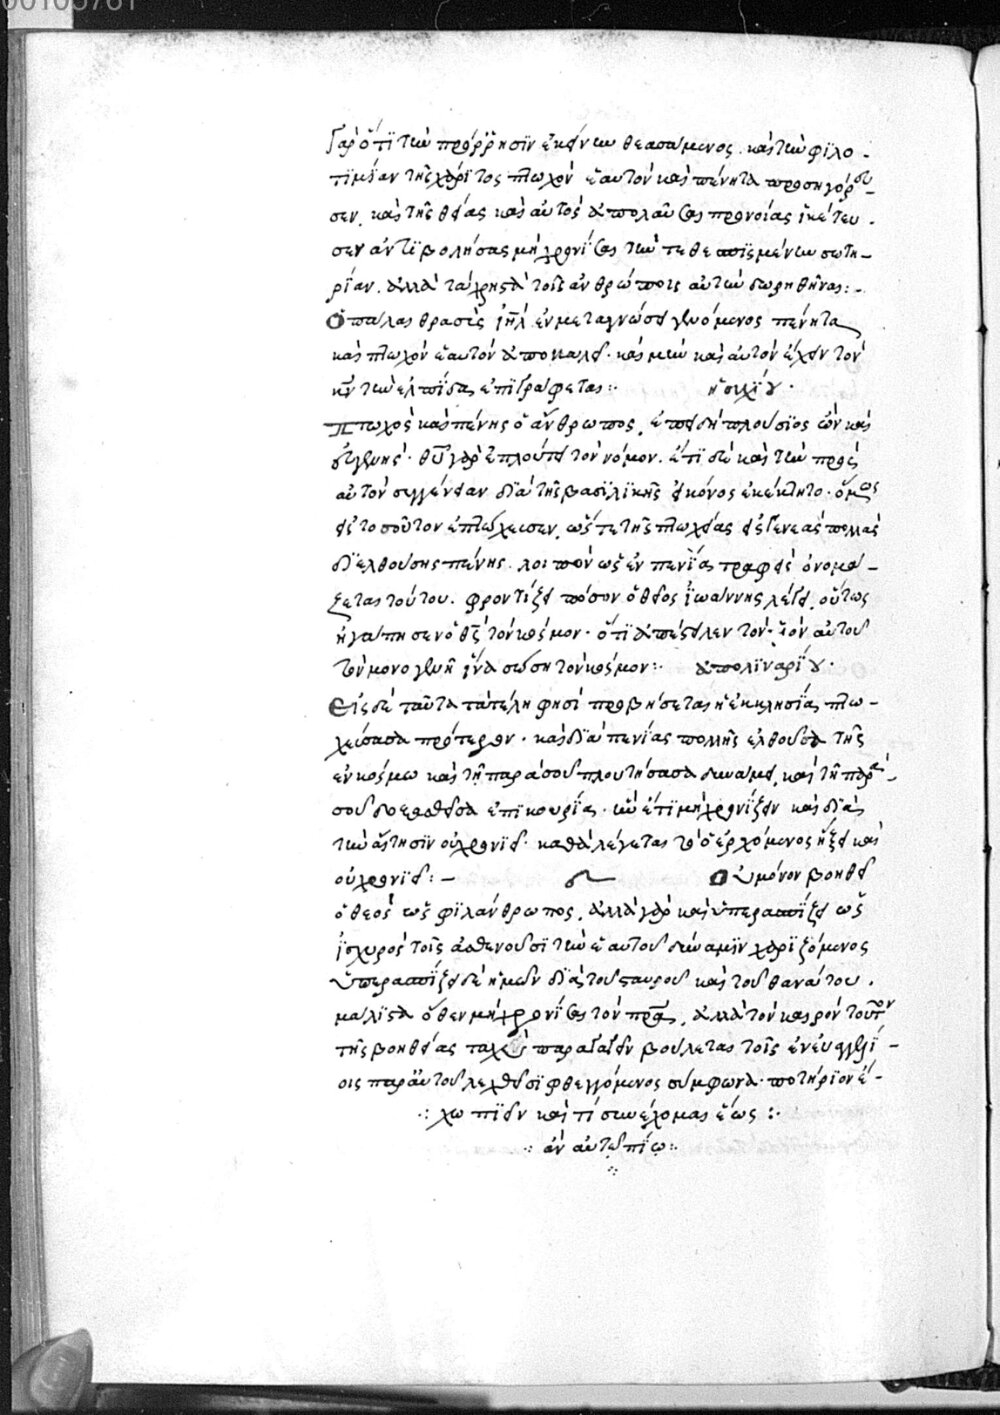 00105761
γὰρ ὅτι τὴν πρόρρησιν ἐκείνων θεασάμενος. καὶ τὴν φιλο-
τιμίαν τῆς χάριτος πτωχὸν ἑαυτὸν καὶ πένητα προσηγόρευ-
σεν, καὶ τῆς θείας καὶ αὐτὸς ἀπολαῦσαι προνοίας ἱκέτευ-
σεν ἀντιβολήσας μὴ χρονίσαι τὴν τεθεσπισμένην σωτη-
ρίαν. ἀλλὰ τάχιστα τοῖς ἀνθρώποις αὐτὴν δωρηθῆναι:-
Ὁ πάλαι θρασὺς ἰηλ ἐν μεταγνώσει γενόμενος πένητα
καὶ πτωχὸν ἑαυτὸν ἀποκαλεῖ. καὶ μὴν καὶ αὐτὸν ἔχειν τὸν
κν τὴν ἐλπίδα ἐπιγράφεται: ἡσυχίου.
Πτωχὸς καὶ πένης ὁ ἄνθρωπος, ἐπειδὴ πλούσιος ὢν καὶ
εὐγενής. θυ γὰρ ἐπλούτει τὸν νόμον. ἔτι δὲ καὶ τὴν πρὸς
αὐτὸν συγγένειαν διὰ τῆς βασιλικῆς εἰκόνος ἐκέκτητο. ὅμως
εἰς τοσοῦτον ἐπτώχευσεν, ὥστε τῆς πτωχείας εἰς γενεὰς πολλὰς
διελθούσης πένης. λοιπὸν ὡς ἐν πενίᾳ τραφεὶς ὀνομά-
ζεται τούτου. φροντίζει πόσον ὁ θεῖος ἰωάννης λέγει, οὕτως
ἠγάπησεν ὁ θς τὸν κόσμον. ὅτι ἀπέστειλεν τὸν υἱὸν αὐτοῦ
τὸν μονογενῆ ἵνα σώσῃ τὸν κόσμον: ἀπολιναρίου.
Εἰς δὲ ταῦτα τὰ τέλη φησὶ προβήσεται ἡ ἐκκλησία πτω-
χεύσασα πρότερον. καὶ διὰ πενίας πολλῆς ἐλθοῦσα τῆς
ἐν κόσμῳ καὶ τῇ παρὰ σοῦ πλουτήσασα δυνάμει, καὶ τῇ παρὰ
σοῦ δοθεῖσα ἐπικουρίᾳ. ἣν ἔτι μὴ χρονίζειν καὶ διὰ
τὴν αἴτησιν οὐ χρονιεῖ. καθὰ λέγεται τὸ ὁ ἐρχόμενος ἥξει καὶ
οὐ χρονιεῖ:- Οὐ μόνον βοηθεῖ
ὁ θεὸς ὡς φιλάνθρωπος, ἀλλὰ γὰρ καὶ ὑπερασπίζει ὡς
ἰσχυρὸς τοῖς ἀσθενοῦσι τὴν ἑαυτοῦ δύναμιν χαριζόμενος
ὑπερασπίζει δὲ ἡμῶν διὰ τοῦ σταυροῦ καὶ τοῦ θανάτου.
μάλιστα ὅθεν μὴ χρονίσαι τὸν πρα, ἀλλὰ τὸν καιρὸν τοῦτον
τῆς βοηθείας ταχέως παραγαγεῖν βούλεται τοῖς ἐν εὐαγγελί-
οις παρ' αὐτοῦ λεχθεῖσι φθεγγόμενος σύμφωνα. ποτήριον ἔ-
χω πιεῖν καὶ τί συνέχομαι ἕως:
ἂν αὐτὸ πίω: